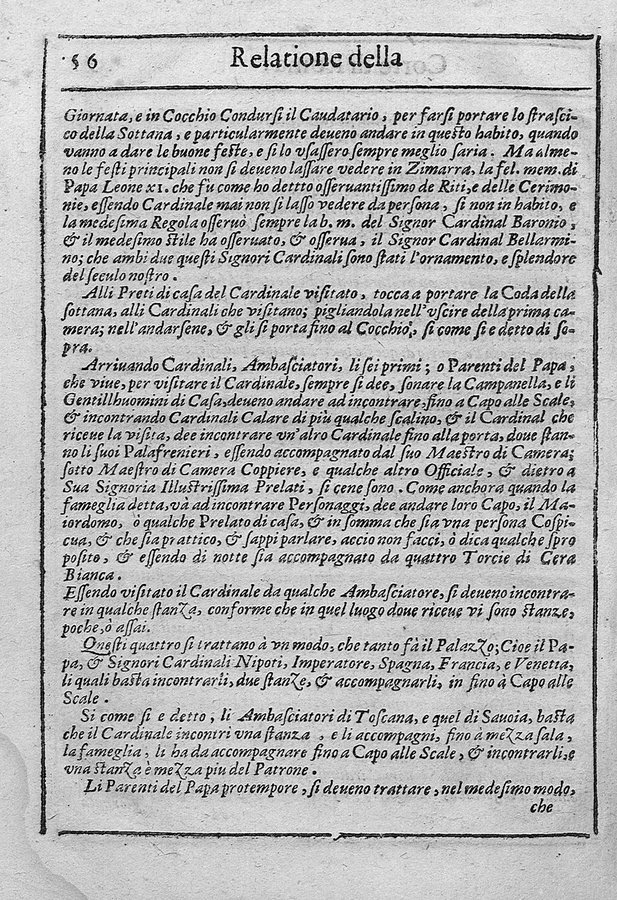 56 Relatione della
Giornata, e in Cocchio Condursi il Caudatario, per farsi portare lo strasci-
co della Sottana, e particularmente deueno andare in questo habito, quando
vanno a dare le buone feste, e si lo vsassero sempre meglio saria. Ma alme-
no le festi principali non si deueno lassare vedere in Zimarra, la fel. mem. di
Papa Leone XI. che fù come ho dettto osseruantissimo de Riti, e delle Cerimo-
nie, essendo Cardinale mai non si lassò vedere da persona, si non in habito, e
la medesima Regola osseruò sempre la b. m. del Signor Cardinal Baronio,
& il medesimo stile ha osseruato, & osserua, il Signor Cardinal Bellarmi-
no; che ambi due questi Signori Cardinali sono stati l'ornamento, e splendore
del seculo nostro.
Alli Preti di casa del Cardinale visitato, tocca a portare la Coda della
sottana, alli Cardinali che visitano; pigliandola nell'vscire della prima ca-
mera; nell'andarsene, & gli si porta fino al Cocchio, si come si e detto di so-
pra.
Arriuando Cardinali, Ambasciatori, li sei primi; o Parenti del Papa,
che viue, per visitare il Cardinale, sempre si dee, sonare la Campanella, e li
Gentilhuomini di Casa, deueno andare ad incontrare, fino a Capo alle Scale,
& incontrando Cardinali Calare di più qualche scalino, & il Cardinal che
riceue la visita, dee incontrare vn'alro Cardinale fino alla porta, doue stan-
no li suoi Palafrenieri, essendo accompagnato dal suo Maestro di Camera;
sotto Maestro di Camera Coppiere, e qualche altro Officiale, & dietro a
Sua Signoria Illustrissima Prelati, si ce ne sono. Come anchora quando la
fameglia detta, và ad incontrare Personaggi, dee andare loro Capo, il Ma-
iordomo, ò qualche Prelato di casa, & in somma che sia vna persona Cospi-
cua, & che sia prattico, & sappi parlare, accio non facci, ò dica qualche spro
posito, & essendo di notte sia accompagnato da quattro Torcie di Cera
Bianca.
Essendo visitato il Cardinale da qualche Ambasciatore, si deueno incontra-
re in qualche stanza, conforme che in quel luogo doue riceue vi sono stanze,
poche, ò assai.
Questi quattro si trattano à vn modo, che tanto fà il Palazzo; Cioe il Pa-
pa, & Signori Cardinali Nipoti, Imperatore, Spagna, Francia, e Venetta,
li quali basta incontrarli, due stanze, & accompagnarli, in fino à Capo alle
Scale.
Si come si e detto, li Ambasciatori di Toscana, e quel di Sauoia, basta
che il Cardinale incontri vna stanza, e li accompagni, fino à mezza sala,
la fameglia, li ha da accompagnare fino a Capo alle Scale, & incontrarli, e
vna stanza è mezza piu del Patrone.
Li Parenti del Papa protempore, si deueno trattare, nel medesimo modo,
che